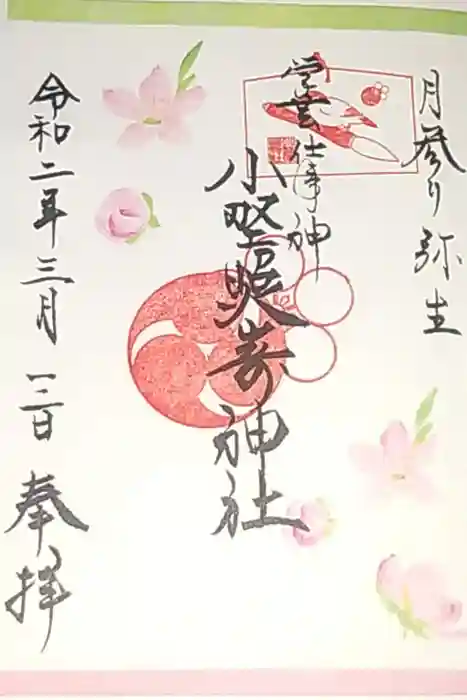 月参り 弥生
学芸仕事神
小野照嵜神社
令和二年三月一二日 奉拝